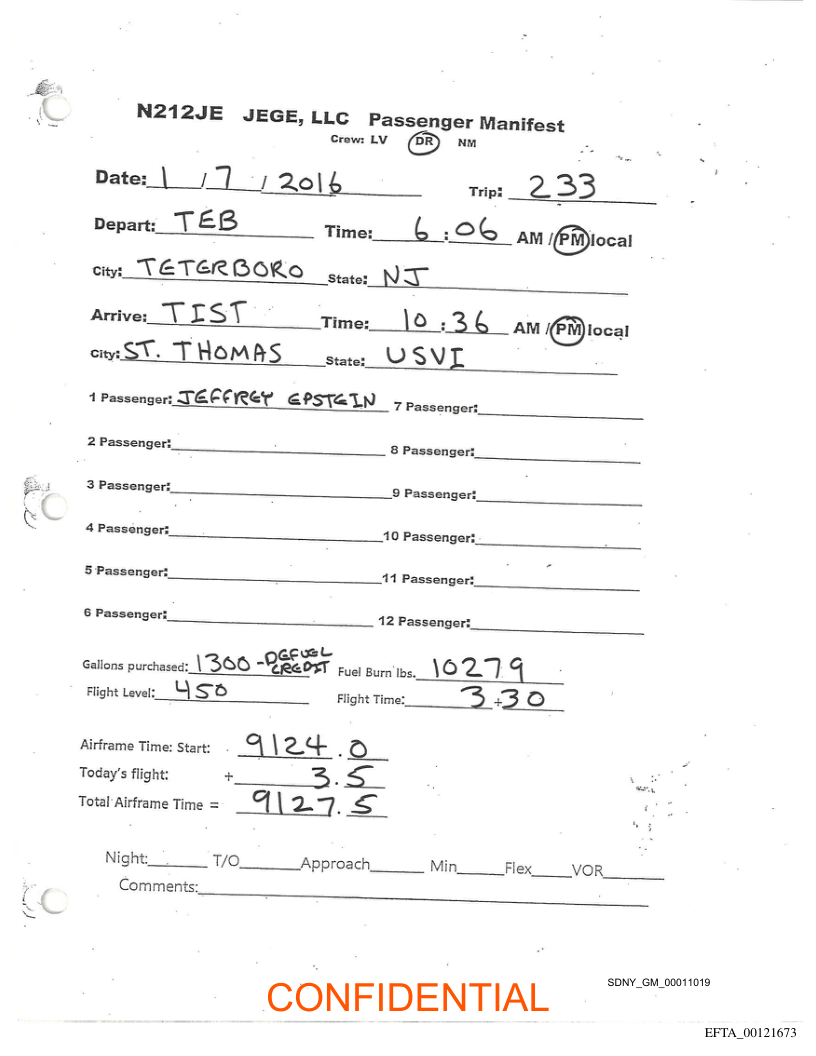 N212JE JEGE, LLC Passenger Manifest
Crew: LV DR NM
Date: 1 / 7 / 2016 Trip: 233
Depart: TEB Time: 6 : 06 AM / PM local
City: TETERBORO State: NJ
Arrive: TIST Time: 10 : 36 AM / PM local
City: ST. THOMAS State: USVI
1 Passenger: JEFFREY EPSTEIN 7 Passenger:
2 Passenger: 8 Passenger:
3 Passenger: 9 Passenger:
4 Passenger: 10 Passenger:
5 Passenger: 11 Passenger:
6 Passenger: 12 Passenger:
Gallons purchased: 1300 - DEFUEL CREDIT Fuel Burn lbs. 10279
Flight Level: 450 Flight Time: 3 + 30
Airframe Time: Start: 9124.0
Today's flight: + 3.5
Total Airframe Time = 9127.5
Night: T/O Approach Min Flex VOR
Comments:
SDNY_GM_00011019
CONFIDENTIAL
EFTA_00121673